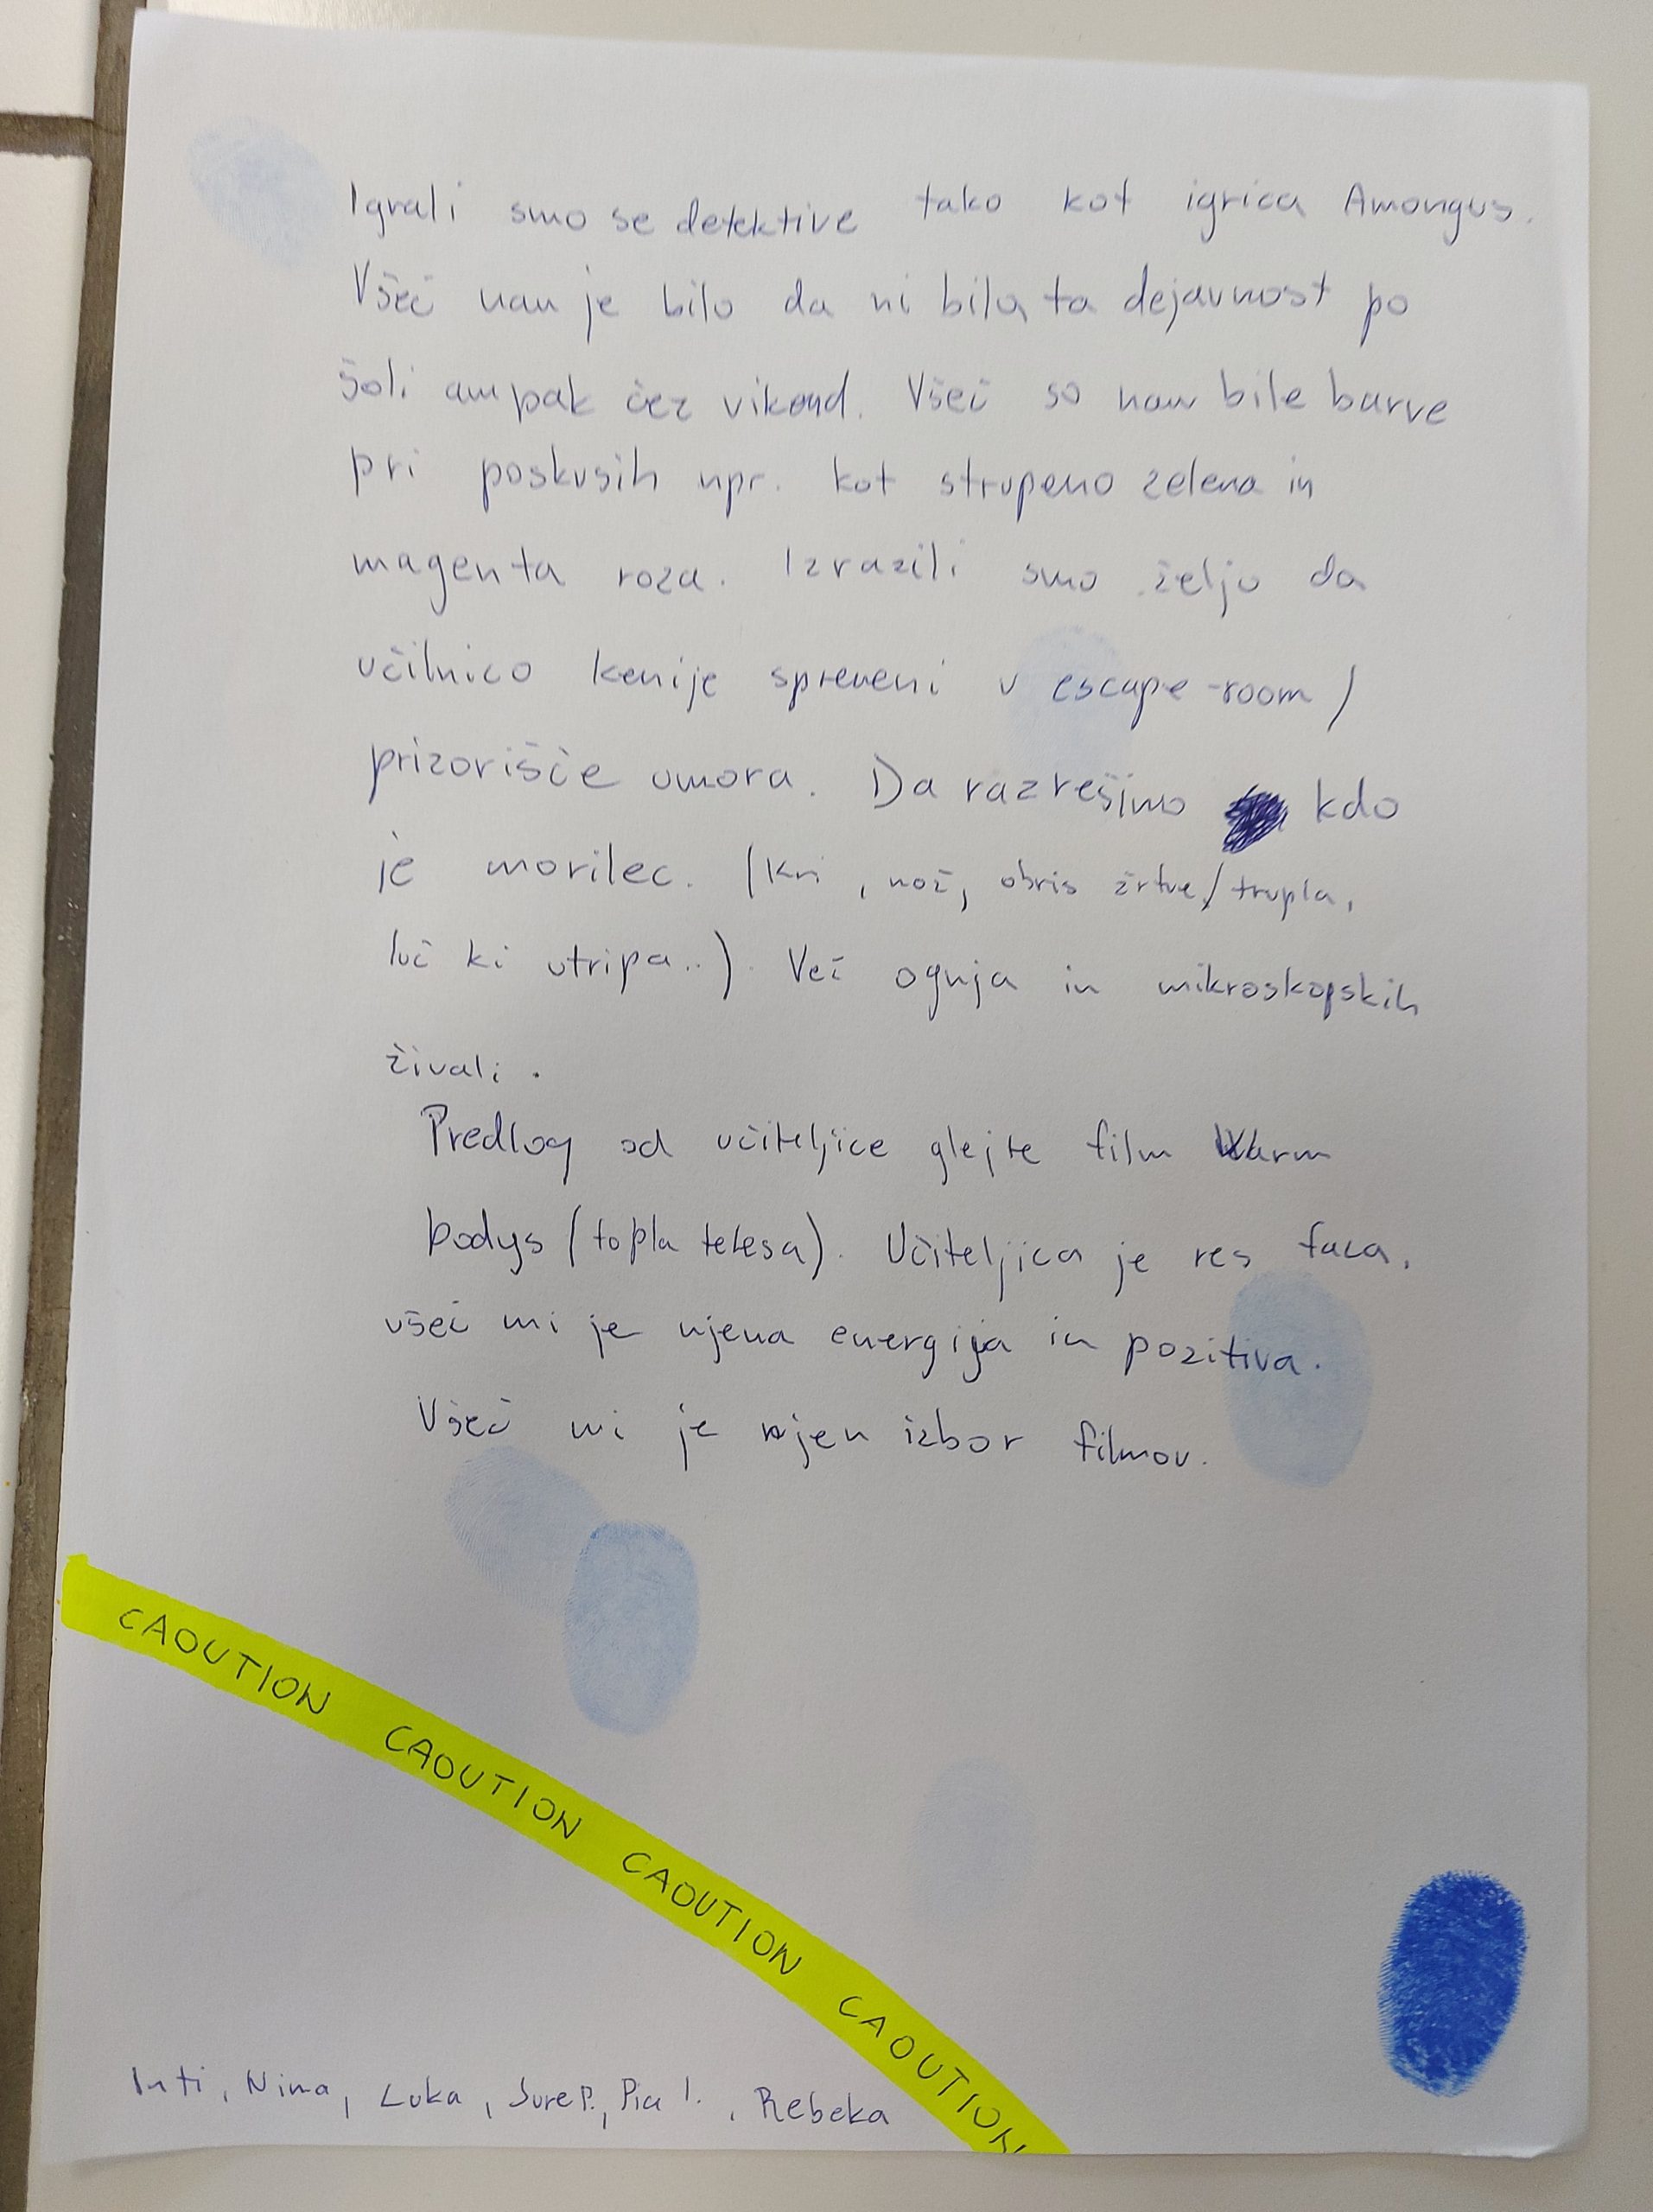 Igrali smo se detektive tako kot igrica Amongus.
Všeč nam je bilo da ni bila ta dejavnost po
šoli ampak čez vikend. Všeč so nam bile barve
pri poskusih npr. kot strupeno zelena in
magenta roza. Izrazili smo željo da
učilnico kemije spremeni v escape-room /
prizorišče umora. Da razrešimo kdo
je morilec. (kri, nož, obris žrtve/trupla,
luč ki utripa..). Več ognja in mikroskopskih
živali.
Predlog od učiteljice glejte film Warm
bodys (topla telesa). Učiteljica je res faca,
všeč mi je njena energija in pozitiva.
Všeč mi je njen izbor filmov.
CAOUTION CAOUTION CAOUTION CAOUTION
Inti, Nina, Luka, Jure P., Pia I., Rebeka